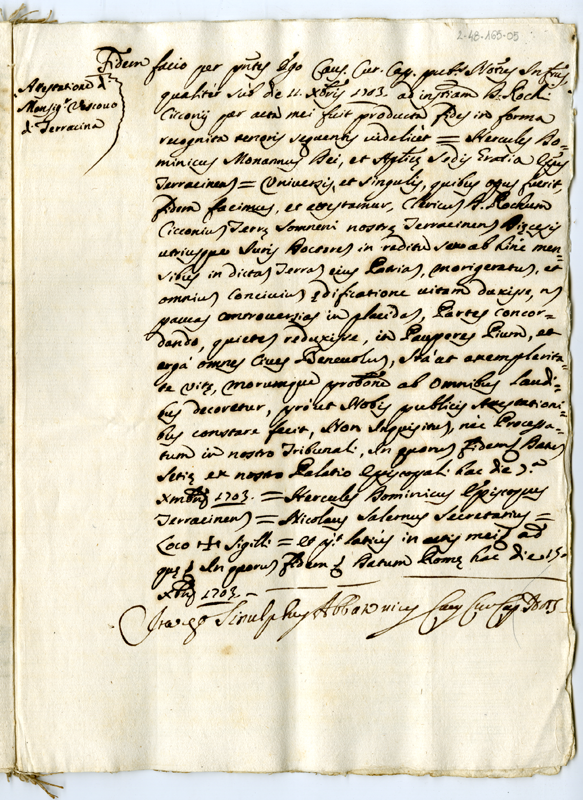 2-48-165-05
Attestatione di
Monsig.r Vescovo
di Terracina
Fidem facio per pntes Ego Caus. Cur. Cap. pub.s Not.s Infrus
qualiter sub die 11. Xbris 1703. ad instam D. Rochi
Cicconij per acta mei fuit producta fides in forma
recognita tenoris sequentis videlicet = Hercules Do-
minicus Monannus Dei, et Aplicæ Sedis Gratia Epus
Terracinen = Universis, et singulis, quibus opus fuerit,
fidem facimus, et attestamur, Clericum D. Rochum
Cicconium Terræ Somneni nostræ Terracinen Diæcesis
utriusque Juris Doctorem in reditu suo ab hinc men-
sibus in dictam Terram eius Patriam, morigeratum, et
omnium Concivium ædificatione vitam duxisse, nec
paucas controversias in placidas, Partes concor-
dando, quietes reduxisse, in Pauperes Pium, et
ergà omnes Cives Benevolum, Ita ut exemplarita-
te vitæ, morumque probitate ab omnibus laudi-
bus decoretur, proùt Nobis publicis Attestationi-
bus constare fecit, Non Inquisitum, nec Processa-
tum in nostro Tribunali. In quorum fidem Datum
Setiæ ex nostro Palatio Episcopali hac die
Xmbris 1703. = Hercules Dominicus Episcopus
Terracinen = Nicolaus Salernus Secretarius =
Loco + Sigilli = et pt latius in actis meis ad
quæ In quorum fidem Datum Romæ hac die 15
Xbris 1703.
Ita est Caus Cur Cap Not